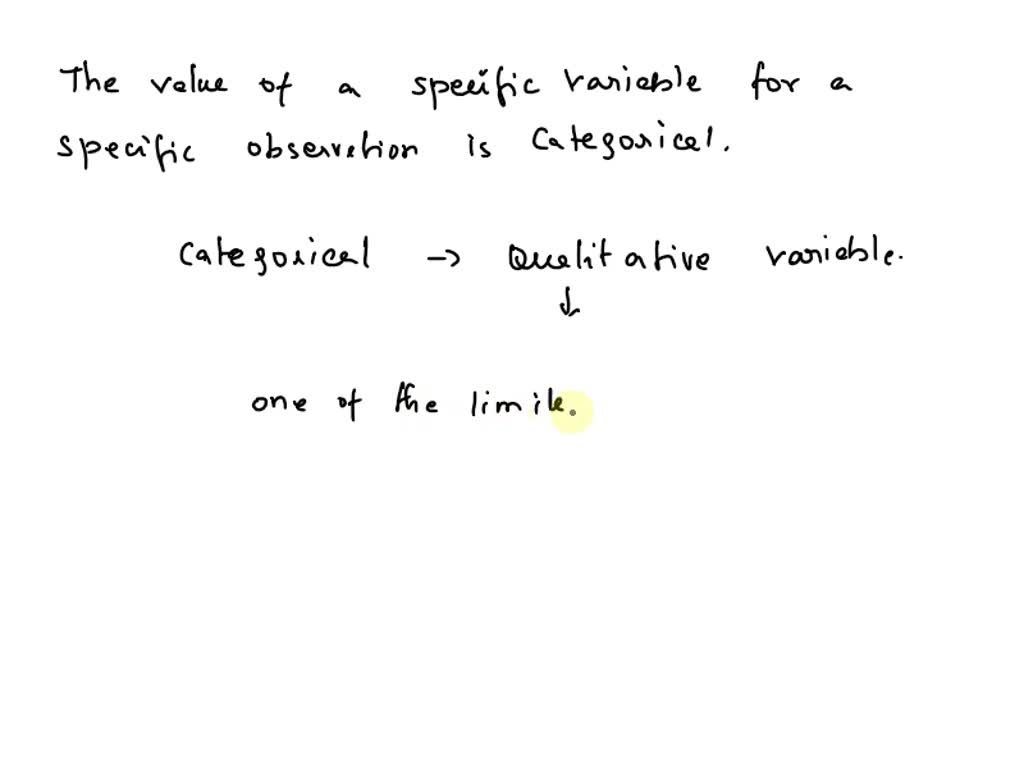 The value of a specific variable for a
specific observation is categorical.
categorical → Qualitative variable.
↓
one of the limite.